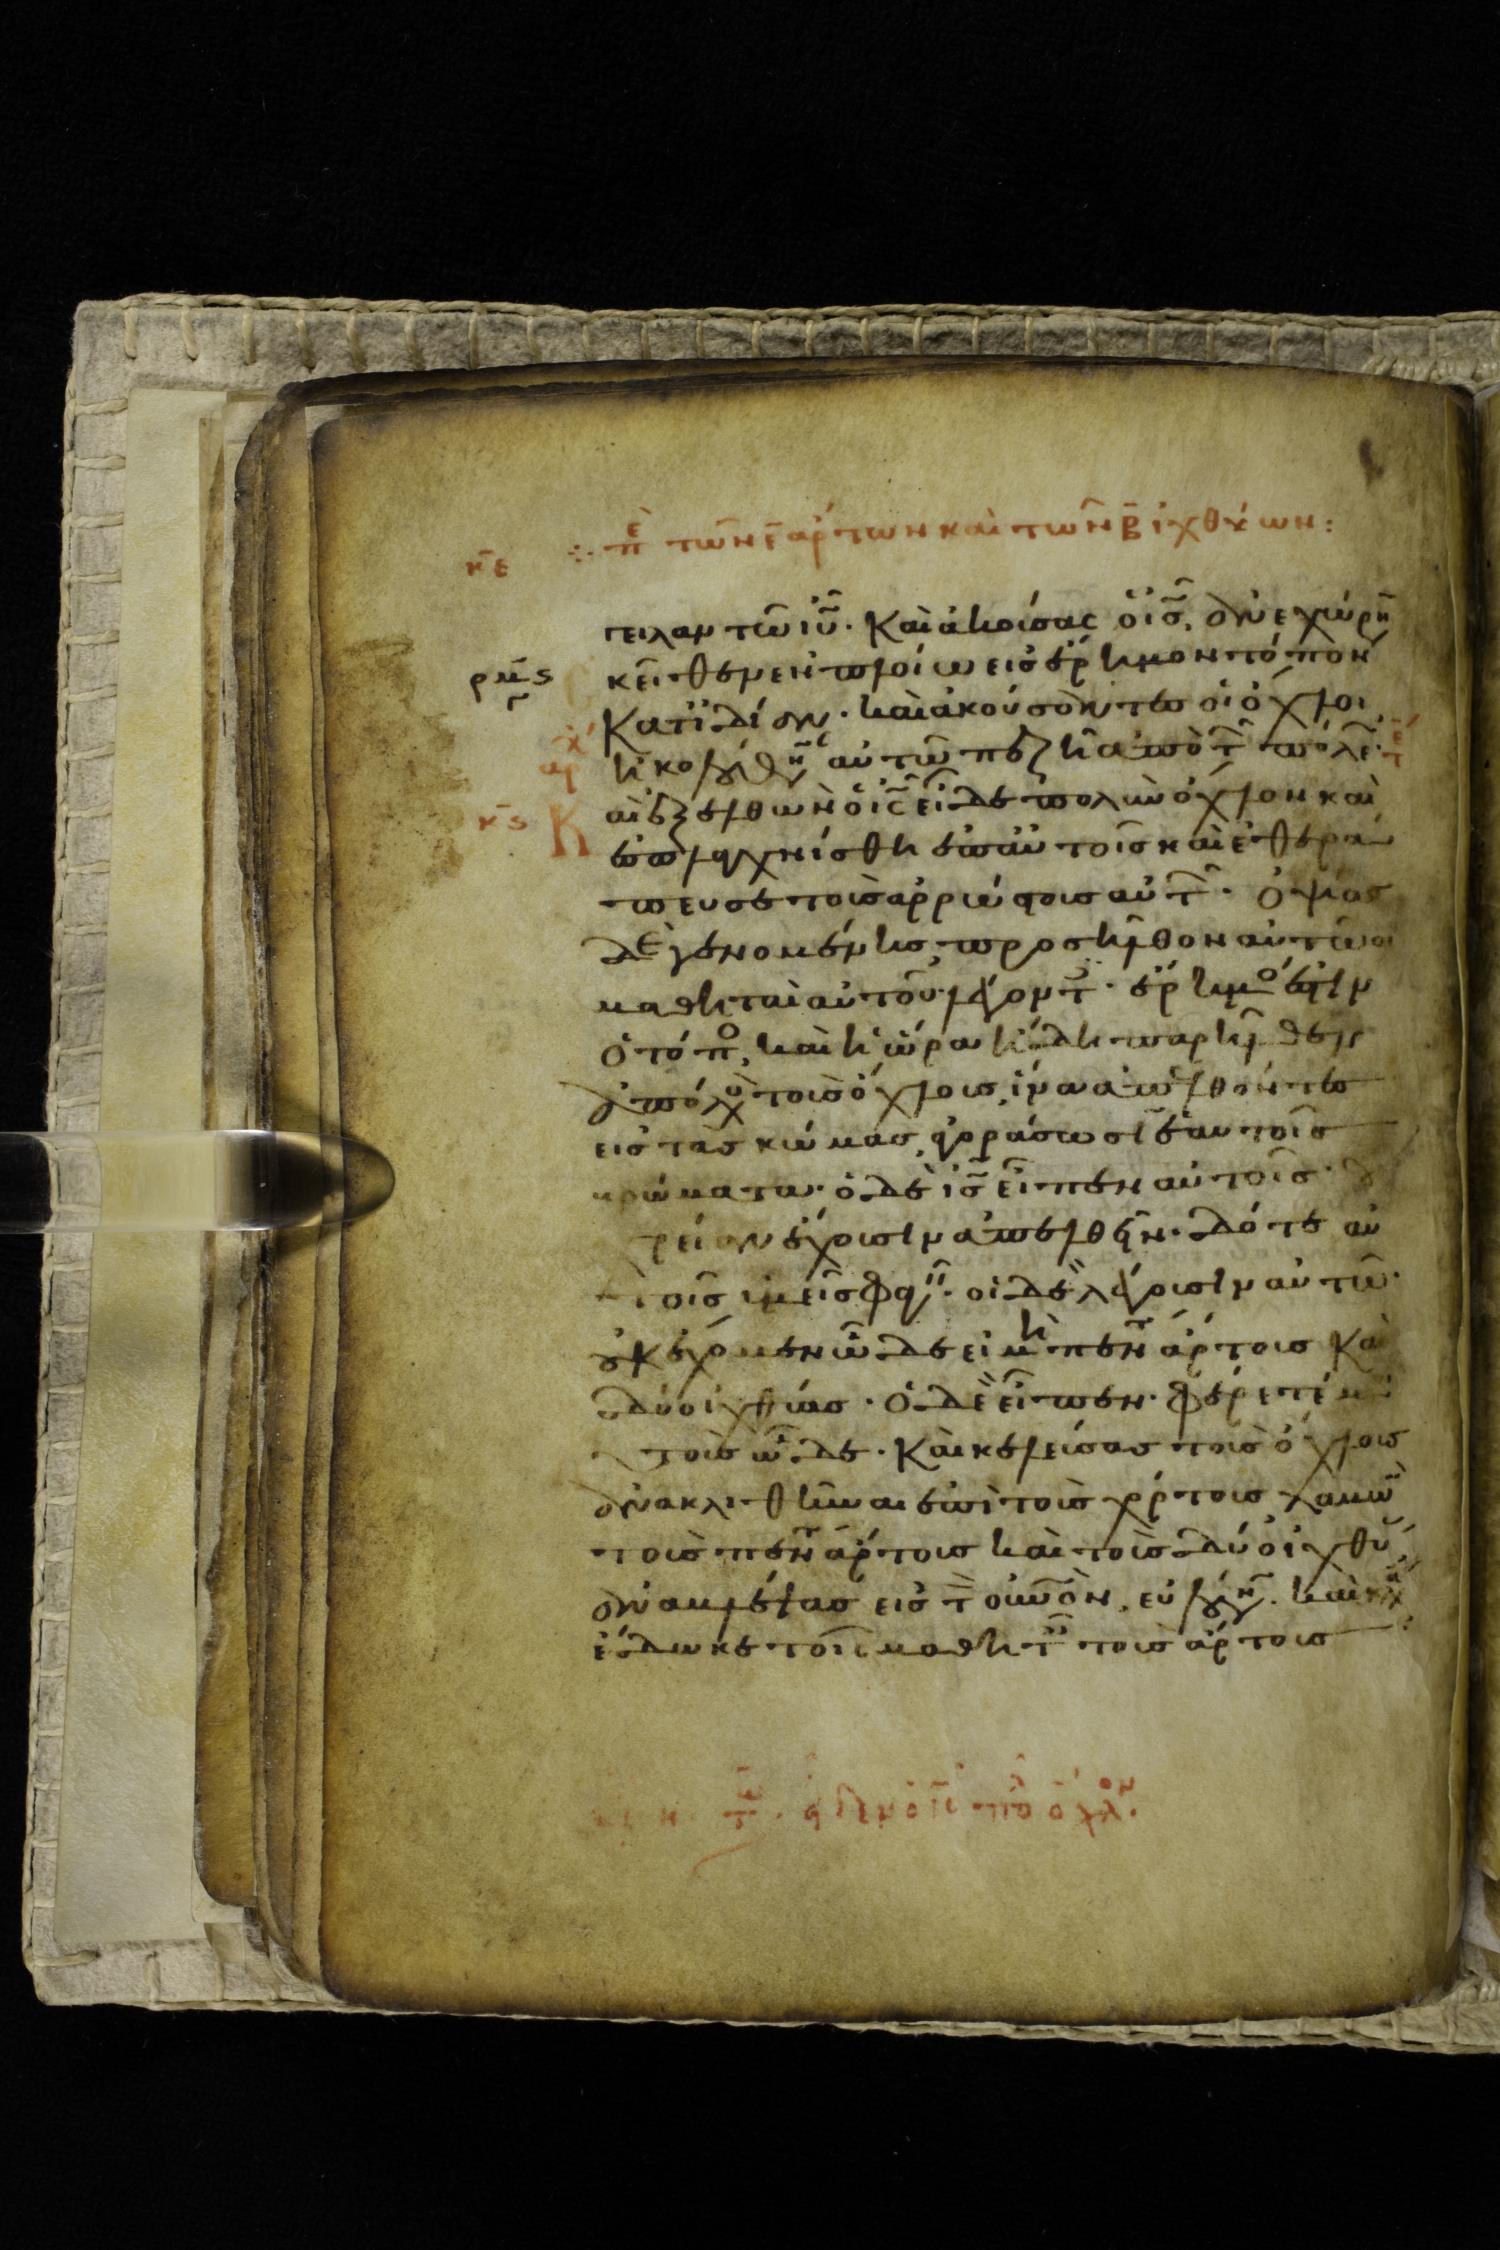 κε ∴ πὲ τῶν ε̄ ἄρτων καὶ τῶν β̄ ἰχθύων:
γειλαν τῶ ιῦ. Καὶ ἀκούσας ὁ ις̄, ἀνεχώρη
ρμς κεῖθεν ἐν πλοίω εἰς ἔρημον τόπον
Κατ ἰδίαν. καὶ ἀκούσαντες οἱ ὄχλοι
ἀρχ ἠκολούθη αὐτῶ πεζῆ ἀπὸ τ πόλε. τε
κς Καὶ ἐξελθὼν ὁ ις̄ εἶδε πολὺν ὄχλον καὶ
ἐσπλαγχνίσθη ἐπ αὐτοῖς καὶ ἐθερά
πευσε τοὺς ἀρρώστους αὐτ. Ὀψίας
δὲ γενομένης, προσῆλθον αὐτῶ οἱ
μαθηταὶ αὐτοῦ λέγοντ. ἔρημο ἐστιν
ὁ τόπο, καὶ ἡ ὥρα ἤδη παρῆλθεν
ἀπόλυ τοὺς ὄχλους, ἵνα ἀπελθόντες
εἰς τὰς κώμας, ἀγοράσωσιν ἑαυτοῖς
βρώματα. ὁ δὲ ις̄ εἶπεν αὐτοῖς. οὐ
χρείαν ἔχουσιν ἀπελθεῖν. δότε αὐ
τοῖς ὑμεῖς φαγ. οἱ δὲ λέγουσιν αὐτῶ.
οὐκ ἔχομεν ὧδε εἰ μὴ πεν ἄρτους Καὶ
δύο ἰχθύας. Ὁ δὲ εἶπεν. φέρετέ μοι
αὐτοὺς ὧδε. Καὶ κελεύσας τοὺς ὄχλους
ἀνακλιθῆναι ἐπὶ τοὺς χόρτους λαβὼ
τοὺς πεν ἄρτους καὶ τοὺς δύο ἰχθύ,
ἀναβλέψας εἰς τ οὐνὸν, εὐλόγη. καὶ κλ
ἔδωκε τοῖς μαθητ τοὺς ἄρτους